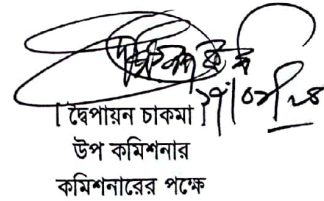 | দ্বৈপায়ন চাকমা |
উপ কমিশনার
কমিশনারের পক্ষে